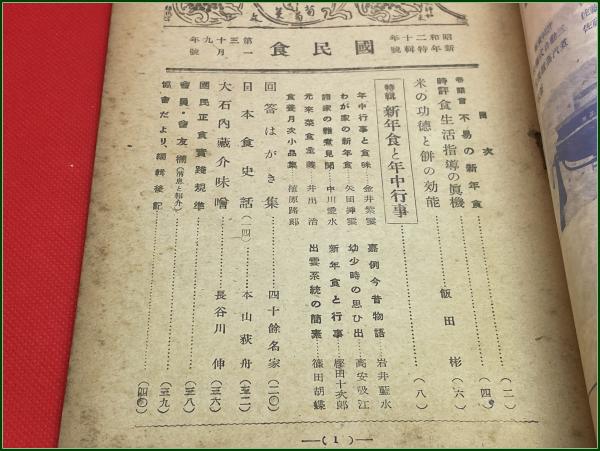 昭和二十年
新年特輯號
國民食
第三十九號
一月
目次
卷頭言 不易の新年食 (二)
時評 食生活指導の眞機 (四)
米の功德と餠の効能 飯田彬 (六)
特輯 新年食と年中行事 (八)
年中行事と食味 金井紫雲
わが家の新年食 矢田挿雲
諸家の雜煮見聞 中川愛水
元來菜食主義 井出治
食養月次小品集 植原路郎
嘉例今昔物語 岩井藍水
幼少時の思ひ出 高安吸江
新年食と行事 膳田十次郎
出雲系統の簡素 篠田胡蝶
回答はがき集 四十餘名家 (二〇)
日本食史話(一四) 本山荻舟 (三二)
大石内藏介味噌 長谷川伸 (三六)
國民正食實踐規準 (三八)
會員・會友欄(消息と紹介) (三九)
協會だより、編輯後記 (四〇)
—( 1 )—